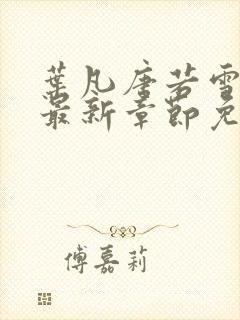 葉凡唐若雪
最新章節免
傅嘉莉